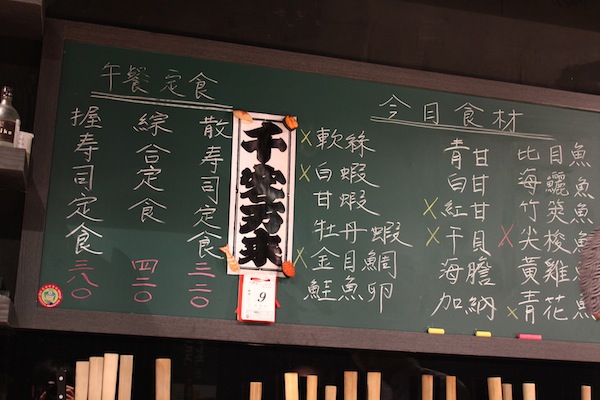 午餐定食
散壽司定食 三二〇
綜合定食 四二〇
握壽司定食 三八〇
千客万来
9
今日食材
x 軟絲
x 白蝦
甘蝦
牡丹蝦
x 金目鯛
鮭魚卵
青甘
白甘
x 紅甘
x 干貝
海膽
加納
比目魚
海鱺魚
竹筴魚
x 尖梭魚
黃雞魚
x 青花魚